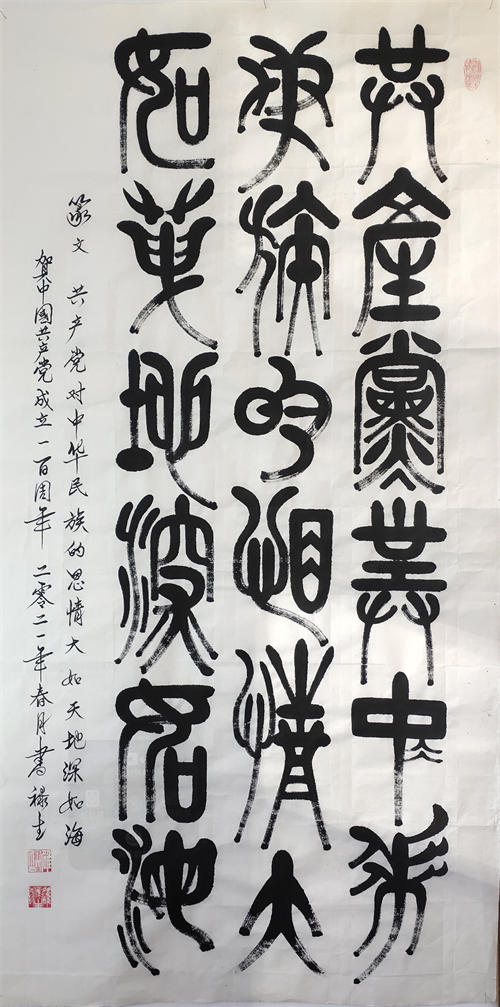 共產黨對中華
民族的恩情大
如天地深如海
篆文 共产党对中华民族的恩情大如天地深如海
贺中國共产党成立一百周年 二零二一年春月書 禄生